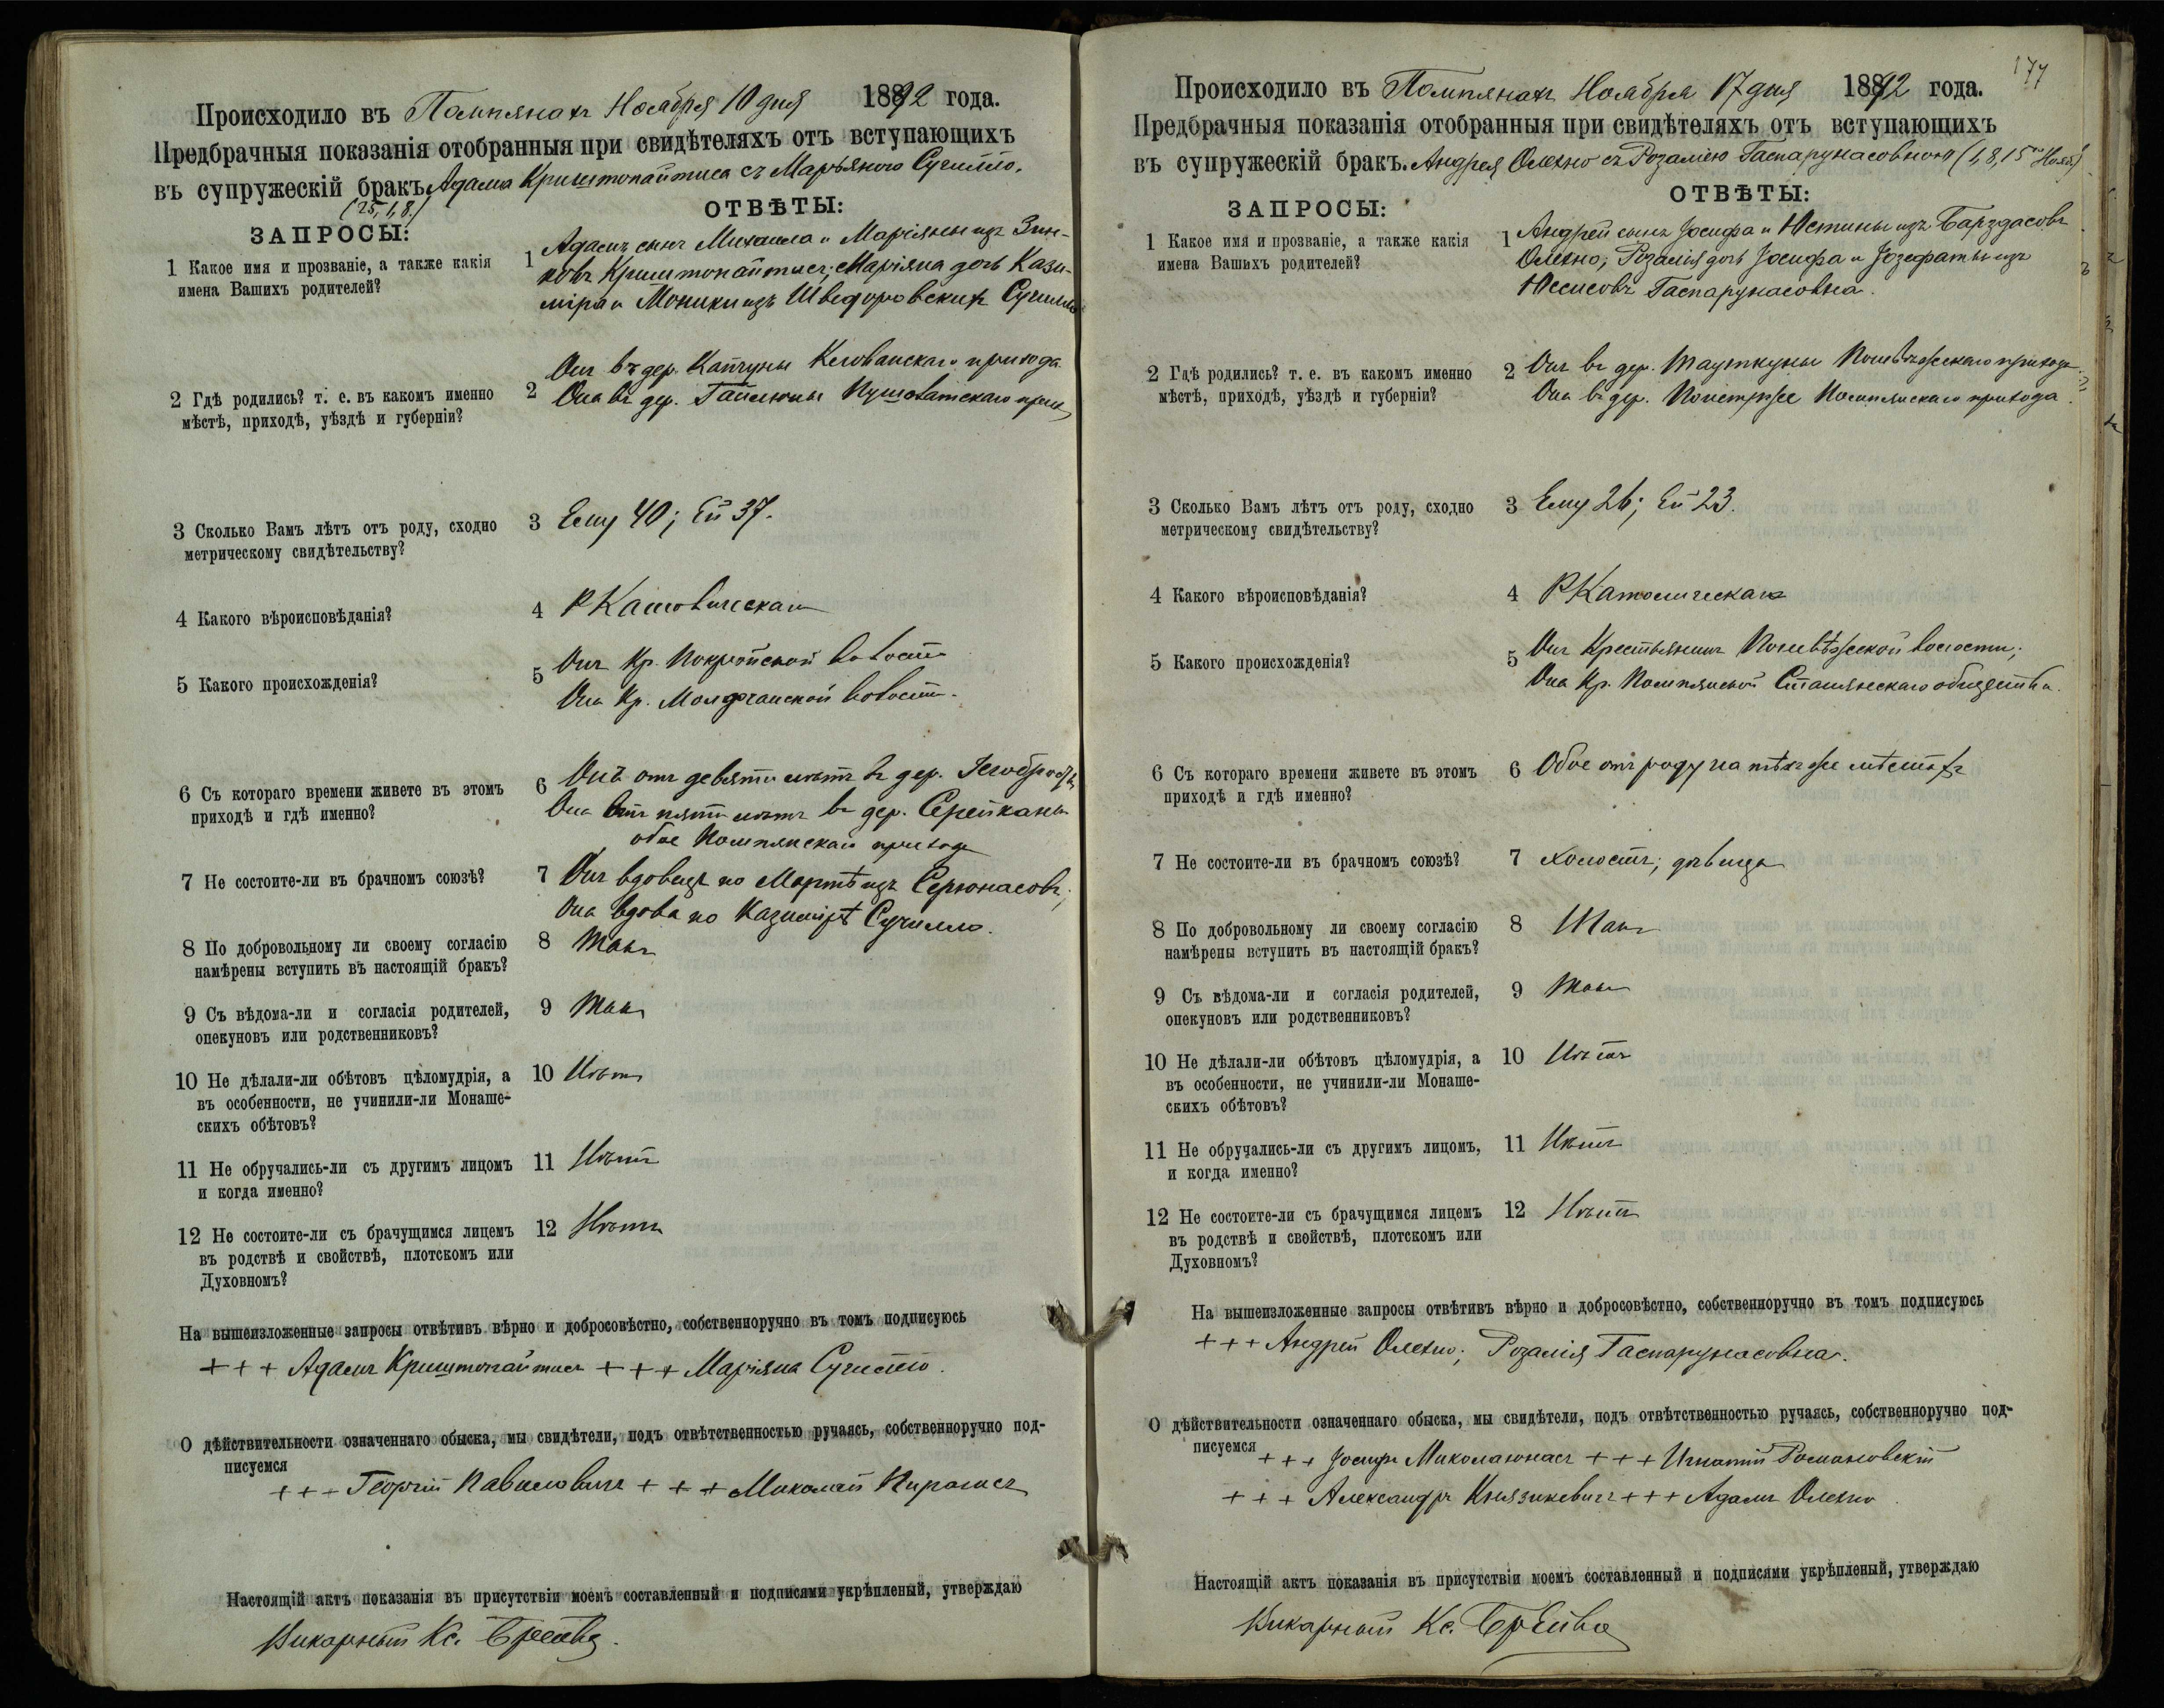 Происходило въ Помпянахъ Ноября 10 дня 1892 года.
Предбрачныя показанія отобранныя при свидѣтеляхъ отъ вступающихъ
въ супружескій бракъ Адама Криштопайтиса съ Марьяною Сучилло.
(25, 1, 8.)
ЗАПРОСЫ:
ОТВѢТЫ:
1 Какое имя и прозваніе, а также какія
имена Вашихъ родителей?
1 Адамъ сынъ Михаила и Маріянны изъ Зин-
ковъ Криштопайтисъ; Маріяна дочь Кази-
міра и Моники изъ Шведоровскихъ Сучилло
2 Гдѣ родились? т. е. въ какомъ именно
мѣстѣ, приходѣ, уѣздѣ и губерніи?
2 Онъ въ дер. прихода
Она въ дер. Пушолатскаго прих.
3 Сколько Вамъ лѣтъ отъ роду, сходно
метрическому свидѣтельству?
3 Ему 40; Ей 37.
4 Какого вѣроисповѣданія?
4 РКатолическаго
5 Какого происхожденія?
5 Онъ Кр. Покройской волости
Она Кр. волости.
6 Съ котораго времени живете въ этомъ
приходѣ и гдѣ именно?
6 Онъ отъ девяти лѣтъ въ дер.
Она отъ пяти лѣтъ въ дер. Серейканы
обое Помпянскаго прихода
7 Не состоите-ли въ брачномъ союзѣ?
7 Онъ вдовецъ по Мартѣ изъ Серюнасовъ;
Она вдова по Казимірѣ Сучилло.
8 По добровольному ли своему согласію
намѣрены вступить въ настоящій бракъ?
8 Такъ
9 Съ вѣдома-ли и согласія родителей,
опекуновъ или родственниковъ?
9 Такъ
10 Не дѣлали-ли обѣтовъ цѣломудрія, а
въ особенности, не учинили-ли Монаше-
скихъ обѣтовъ?
10 Нѣтъ
11 Не обручались-ли съ другимъ лицомъ
и когда именно?
11 Нѣтъ
12 Не состоите-ли съ брачущимся лицемъ
въ родствѣ и свойствѣ, плотскомъ или
Духовномъ?
12 Нѣтъ
На вышеизложенные запросы отвѣтивъ вѣрно и добросовѣстно, собственноручно въ томъ подписуюсь
+ + + Адамъ Криштопайтисъ + + + Маріяна Сучилло.
О дѣйствительности означеннаго обыска, мы свидѣтели, подъ отвѣтственностью ручаясь, собственноручно под-
писуемся
+ + + Георгій Павиловичъ + + + Миколай
Настоящій актъ показанія въ присутствіи моемъ составленный и подписями укрѣпленый, утверждаю
Викарный Кс.
177
Происходило въ Помпянахъ Ноября 17 дня 1892 года.
Предбрачныя показанія отобранныя при свидѣтеляхъ отъ вступающихъ
въ супружескій бракъ. Андрея Олехно съ Розаліею Гаспарунасовною (1, 8, 15 Нояб.)
ЗАПРОСЫ:
ОТВѢТЫ:
1 Какое имя и прозваніе, а также какія
имена Вашихъ родителей?
1 Андрей сынъ Іосифа и Юстины изъ Барздасовъ
Олехно; Розалія дочь Іосифа и Іозефаты изъ
Гаспарунасовна.
2 Гдѣ родились? т. е. въ какомъ именно
мѣстѣ, приходѣ, уѣздѣ и губерніи?
2 Онъ въ дер. Тауткуны Поневѣжскаго прихода
Она въ дер. Поистрже Помпянскаго прихода.
3 Сколько Вамъ лѣтъ отъ роду, сходно
метрическому свидѣтельству?
3 Ему 26; Ей 23.
4 Какого вѣроисповѣданія?
4 РКатолическаго
5 Какого происхожденія?
5 Онъ Крестьянинъ Поневѣжской волости;
Она Кр. Помпянской общества.
6 Съ котораго времени живете въ этомъ
приходѣ и гдѣ именно?
6 Обое отъ роду на тѣхъ же мѣстахъ
7 Не состоите-ли въ брачномъ союзѣ?
7 Холостъ; дѣвица
8 По добровольному ли своему согласію
намѣрены вступить въ настоящій бракъ?
8 Такъ
9 Съ вѣдома-ли и согласія родителей,
опекуновъ или родственниковъ?
9 Такъ
10 Не дѣлали-ли обѣтовъ цѣломудрія, а
въ особенности, не учинили-ли Монаше-
скихъ обѣтовъ?
10 Нѣтъ
11 Не обручались-ли съ другимъ лицомъ,
и когда именно?
11 Нѣтъ
12 Не состоите-ли съ брачущимся лицемъ
въ родствѣ и свойствѣ, плотскомъ или
Духовномъ?
12 Нѣтъ
На вышеизложенные запросы отвѣтивъ вѣрно и добросовѣстно, собственноручно въ томъ подписуюсь
+ + + Андрей Олехно; Розалія Гаспарунасовна.
О дѣйствительности означеннаго обыска, мы свидѣтели, подъ отвѣтственностью ручаясь, собственноручно под-
писуемся
+ + + Іосифъ Миколаюнасъ + + + Игнатій Романовскій
+ + + Александръ Князикевичъ + + + Адамъ Олехно.
Настоящій актъ показанія въ присутствіи моемъ составленный и подписями укрѣпленый, утверждаю
Викарный Кс.